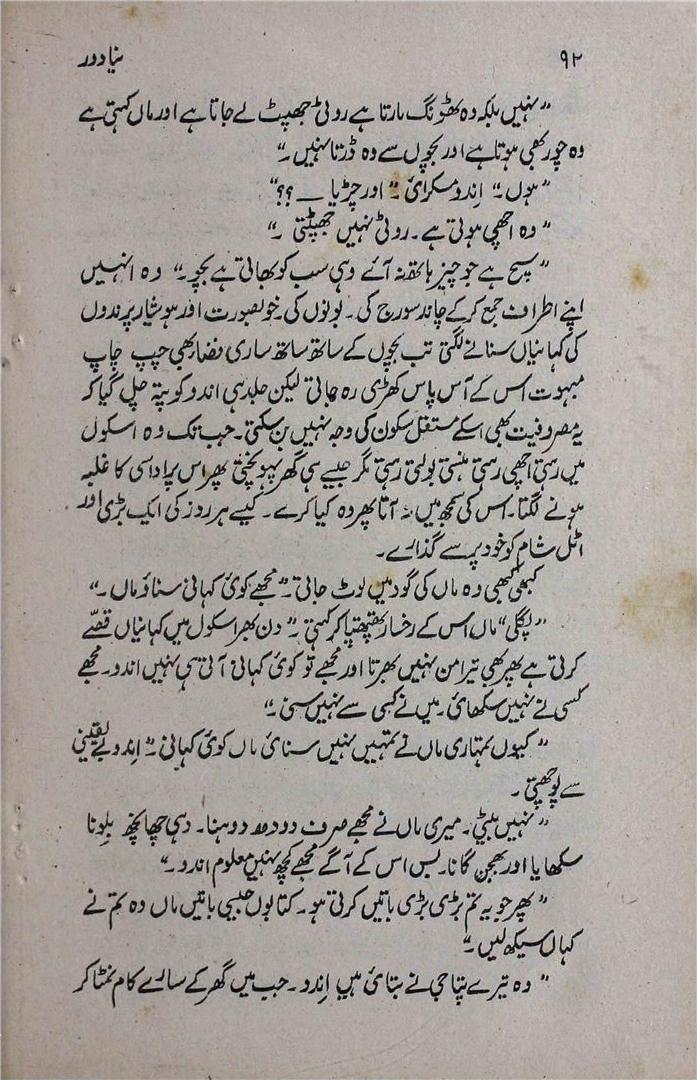 ۹۲
نیا دور
"نہیں بلکہ وہ ٹھونگ مارتا ہے روٹی جھپٹ لے جاتا ہے اور ماں کہتی ہے
وہ چور بھی ہوتا ہے اور بچوں سے وہ ڈرتا نہیں۔"
"ہوں۔" اِندو مسکرائی۔ "اور چڑیا ــ ؟؟"
"وہ اچھی ہوتی ہے۔ روٹی نہیں جھپٹتی ۔"
"سچ ہے جو چیز ہاتھ نہ آئے وہی سب کو بھاتی ہے بچو۔" وہ انہیں
اپنے اطراف جمع کر کے چاند سورج کی۔ بونوں کی۔ خوبصورت اور ہوشیار پرندوں
کی کہانیاں سنانے لگتی تب بچوں کے ساتھ ساتھ ساری فضا بھی چپ چاپ
مبہوت اس کے آس پاس کھڑی رہ جاتی لیکن جلد ہی اندو کو پتہ چل گیا کہ
یہ مصروفیت بھی اسکے مستقل سکون کی وجہ نہیں بن سکتی۔ جب تک وہ اسکول
میں رہتی اچھی رہتی ہنستی بولتی رہتی مگر جیسے ہی گھر پہونچتی پھر اس پر اداسی کا غلبہ
ہونے لگتا۔ اس کی سمجھ میں نہ آتا پھر وہ کیا کرے۔ کیسے ہر روز کی ایک بڑی اور
اٹل شام کو خود پر سے گذارے۔
کبھی کبھی وہ ماں کی گود میں لوٹ جاتی۔ "مجھے کوئی کہانی سناؤ ماں ۔"
"پگلی" ماں اس کے رخسار تھپتھپا کر کہتی ۔ "دن بھر اسکول میں کہانیاں قصّے
کرتی ہے پھر بھی تیرا من نہیں بھرتا اور مجھے تو کوئی کہانی آتی ہی نہیں اندو۔ مجھے
کسی نے نہیں سکھائی۔ میں نے کسی سے نہیں سنی۔"
"کیوں تمہاری ماں نے تمہیں نہیں سنائی ماں کوئی کہانی۔" اِندو بے یقینی
سے پوچھتی ۔
"نہیں بیٹی۔ میری ماں نے مجھے صرف دودھ دوہنا۔ دہی چھاچھ بلونا
سکھایا اور بھجن گانا۔ بس اس کے آگے مجھے کچھ نہیں معلوم اندو ۔"
"پھر جو یہ تم بڑی بڑی باتیں کرتی ہو۔ کتابوں جیسی باتیں ماں وہ تم نے
کہاں سیکھ لیں ۔"
"وہ تیرے پتا جی نے بتائی ہیں اِندو۔ جب میں گھر کے سارے کام نمٹا کر